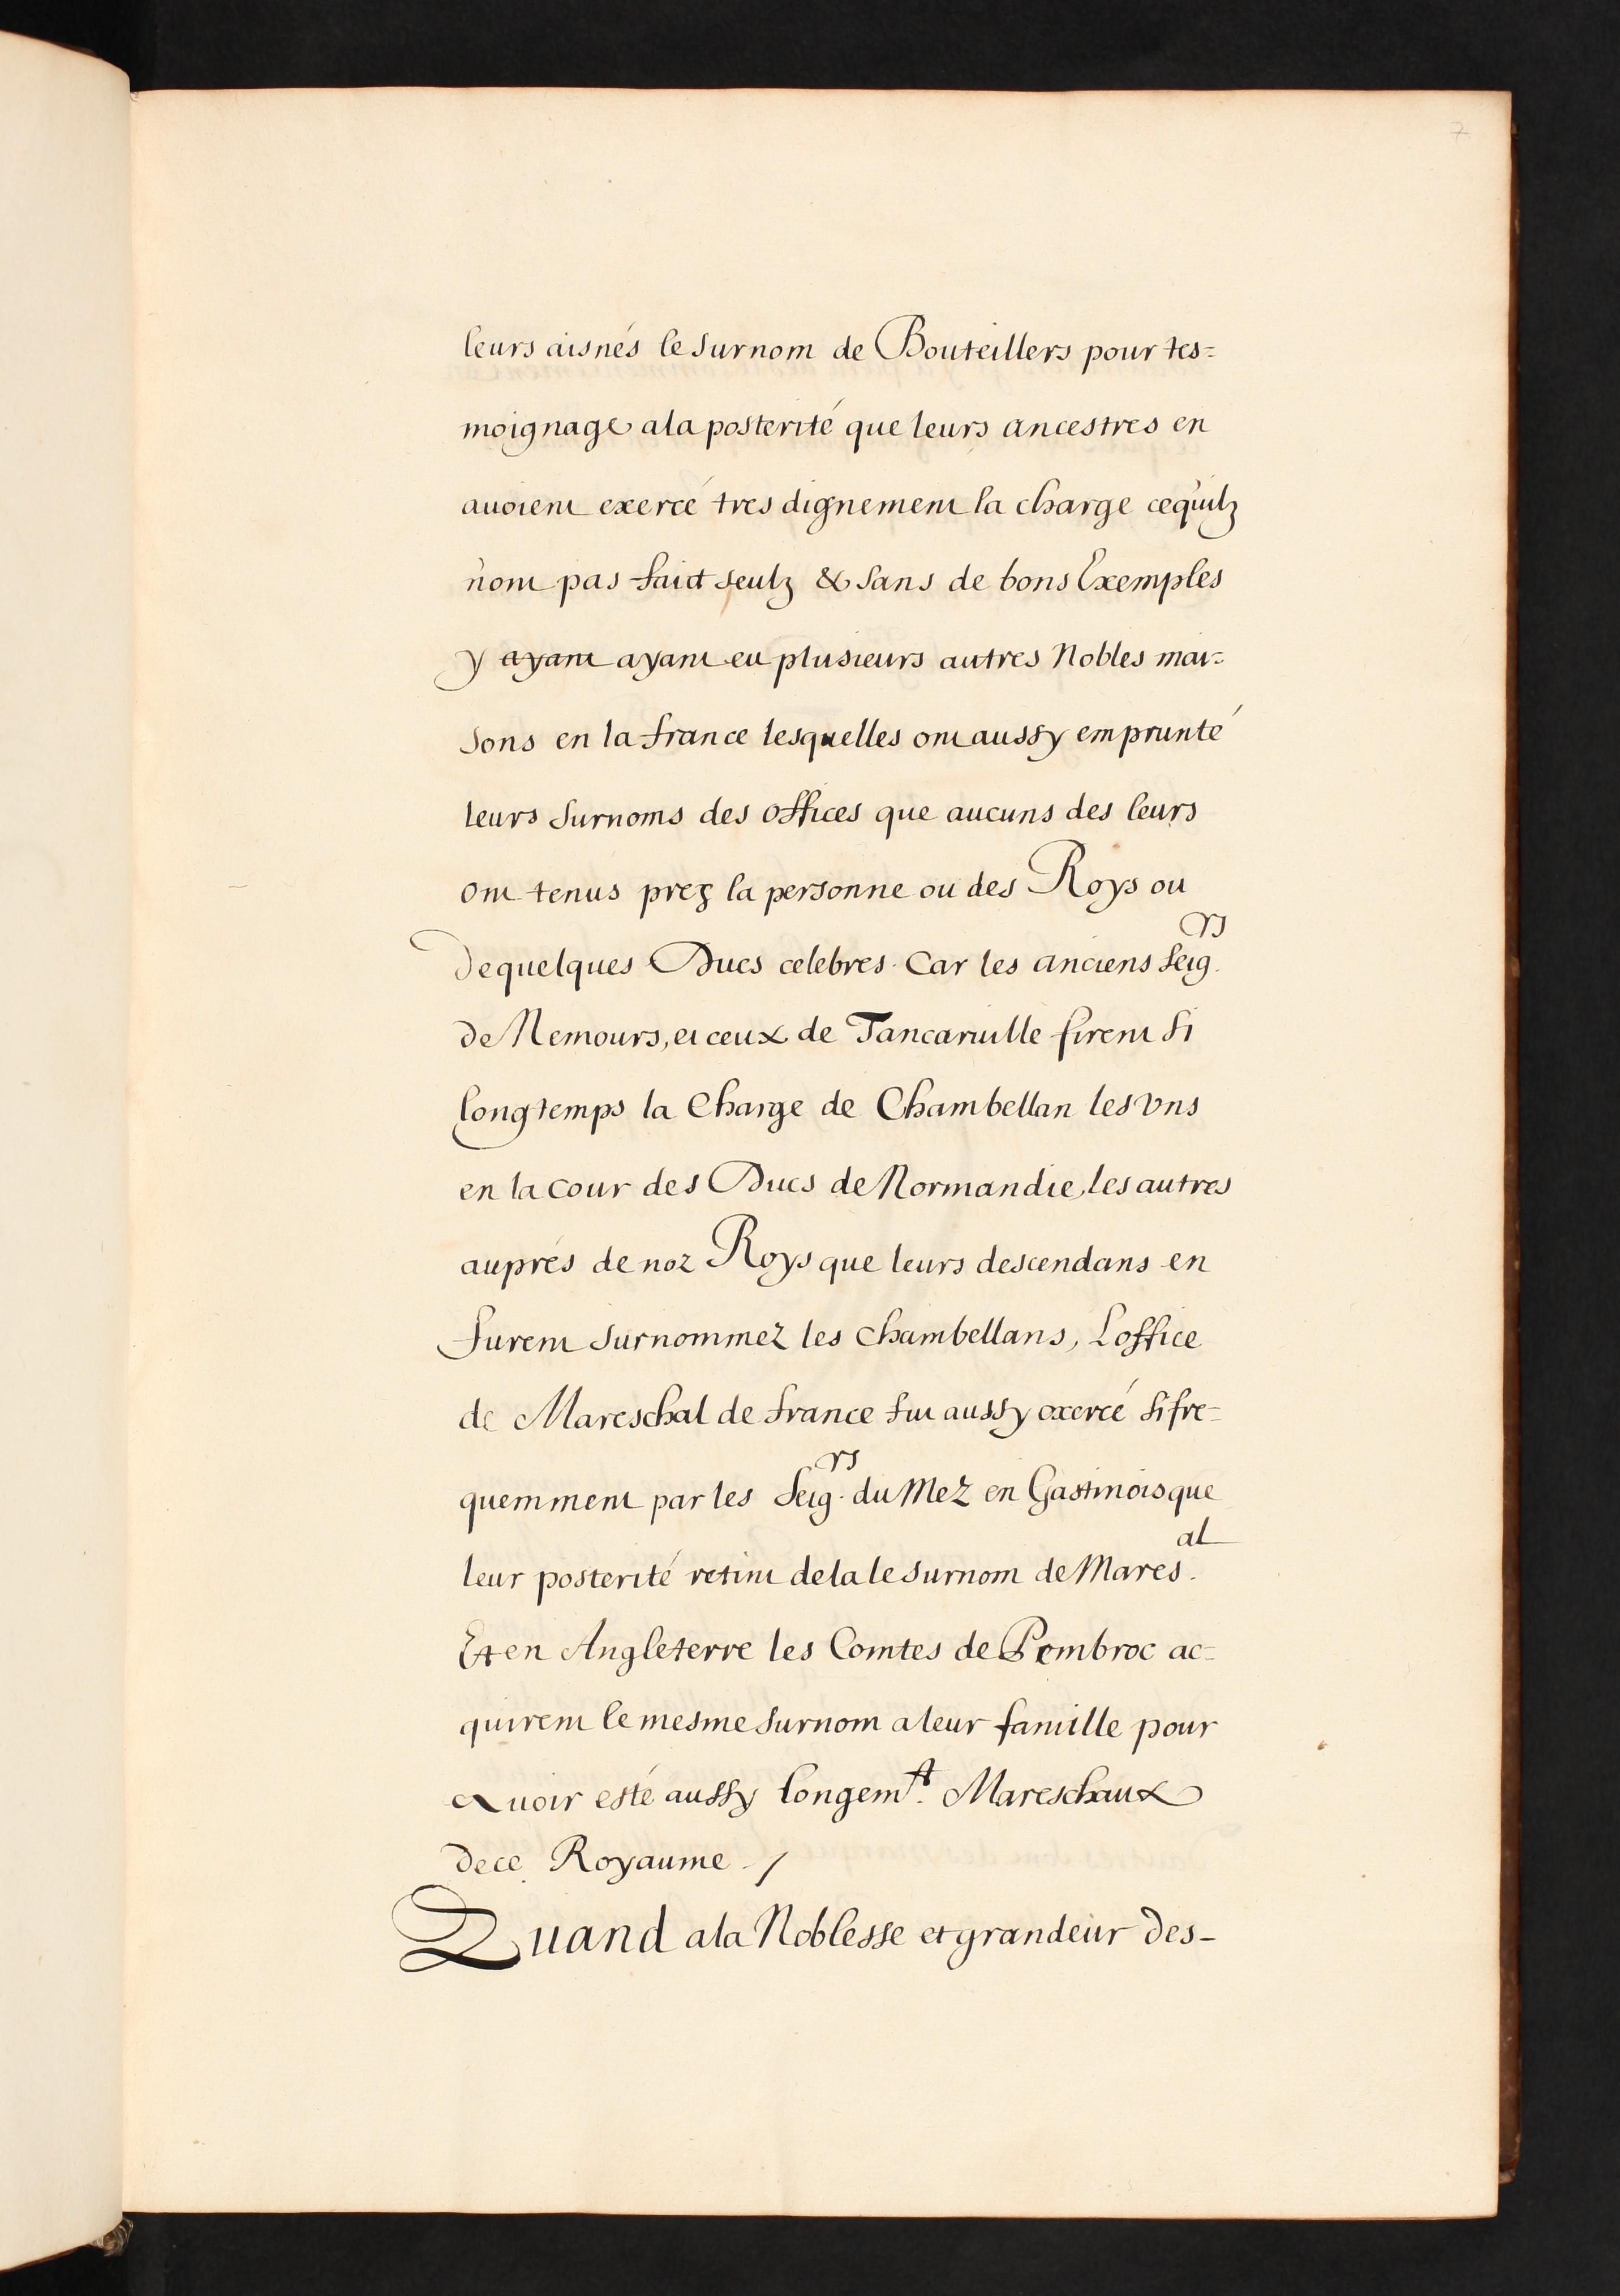 7
leurs aisnés le surnom de Bouteillers pour tes=
moignage a la posterité que leurs ancestres en
auoient exercé tres dignement la charge ce qu'ilz
n'ont pas faict seulz & sans de bons Exemples
y ayant ayant eu plusieurs autres Nobles mai=
sons en la france lesquelles ont aussy emprunté
leurs surnoms des offices que aucuns des leurs
ont tenus prez la personne ou des Roys ou
de quelques Ducs celebres. Car les anciens Seig.rs
de Nemours, et ceux de Tancaruille firent si
longtemps la Charge de Chambellan les vns
en la Cour des Ducs de Normandie, les autres
auprés de noz Roys que leurs descendans en
furent surnommez les chambellans, L'office
de Mareschal de france fut aussy exercé si fre=
quemment par les Seig.rs du Mez en Gastinois que
leur posterité retint de la le surnom de Mares.al
Et en Angleterre les Comtes de Pembroc ac=
quirent le mesme surnom a leur famille pour
auoir esté aussy longem.t Mareschaux
de ce Royaume /
Quand a la Noblesse et grandeur des-